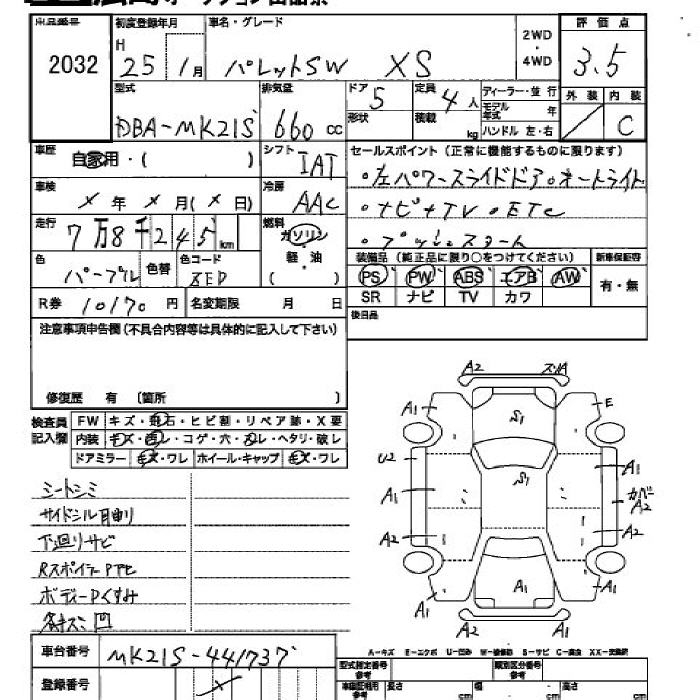 出品番号 初度登録年月 車名・グレード 2WD・4WD 評価点
2032 H 25 1月 パレットSW XS 3.5
型式 排気量 ドア 5 定員 4人 ディーラー・並行 外装 内装
DBA-MK21S 660cc 形状 積載 kg モデル年式 年 ハンドル 左・右 C
車歴 自家用・( ) シフト IAT セールスポイント(正常に機能するものに限ります)
車検 ×年 ×月(×日) 冷房 AAC ・左パワースライドドア・オートライト
走行 7万8千245km 燃料 ガソリン・軽油 ( ) ・ナビ+TV・ETC
・プッシュスタート
色 パープル 色替 色コード ZED
装備品(純正品に限り○をつけてください) 新車保証書
PS PW ABS エアB AW 有・無
SR ナビ TV カワ
R券 10170円 名変期限 月 日 後日品
注意事項申告欄(不具合内容等は具体的に記入して下さい)
修復歴 有 〔箇所 〕
検査員記入欄 FW キズ・飛石・ヒビ割・リペア跡・X要
内装 キズ・西レ・コゲ・穴・スレ・ヘタリ・破レ
ドアミラー キズ・ワレ ホイール・キャップ キズ・ワレ
シートシミ
サイドシル曲り
下廻りサビ
RスポイラーPヤセ
ボディーPくすみ
各キズミ凹
A2 スリA
A1 S1 E
U2 S1 A1
A1 カバーA2
A2 A2
A1 A1 A1
A2 A1
A-キズ E-エクボ U-凹み W-補修跡 S-サビ C-腐食 XX-交換済
車台番号 MK21S-441737
登録番号 ×
型式指定番号 参考 類別区分番号 参考
車庫証明用 参考 長さ cm 幅 cm 高さ cm